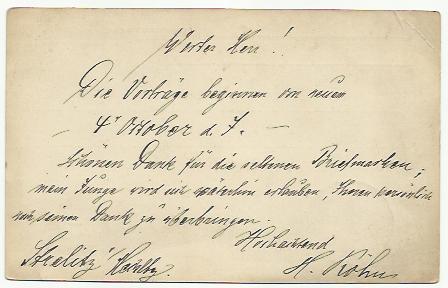 Werter Herr!
Die Vorträge beginnen von neuem
4' Oktober d. J. -
Schönen Dank für die seltenen Briefmarken;
mein Junge wird sich erlauben, Ihnen persönlich
seinen Dank zu überbringen.
Hochachtend
Strelitz H. Köhn